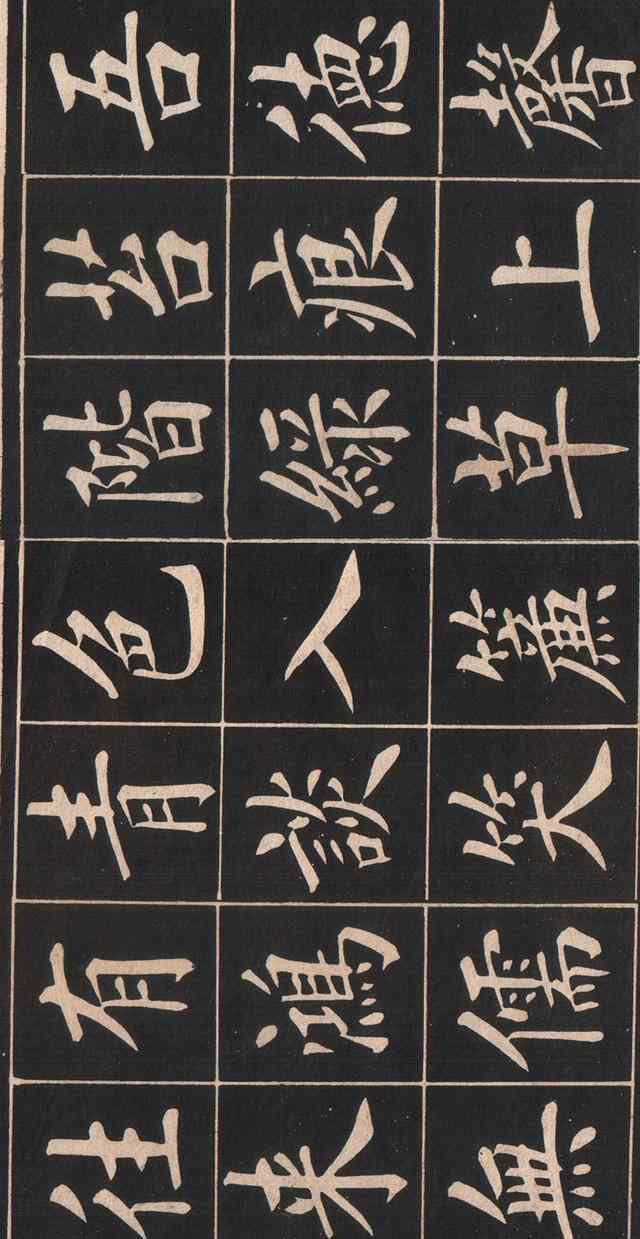 吾德馨
苔痕上
階綠草
色入簾
青談笑
有鴻儒
往來無